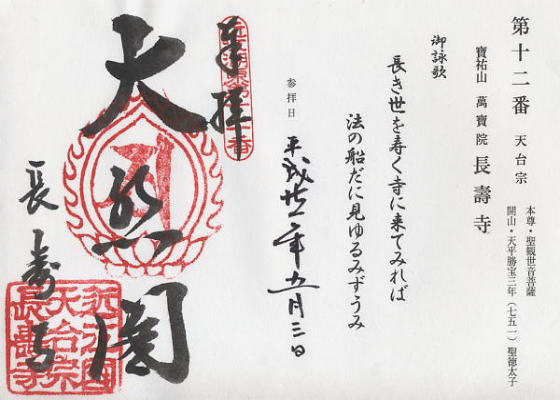 第十二番 天台宗
本尊・聖観世音菩薩
開山・天平勝宝三年(七五一)聖徳太子
寶祐山 萬寶院 長壽寺
御詠歌
長き世を寿く寺に来てみれば
法の船だに見ゆるみずうみ
参拝日
平成廿一年五月三日
奉拝
大悲閣
長寿寺
天台宗
長壽寺